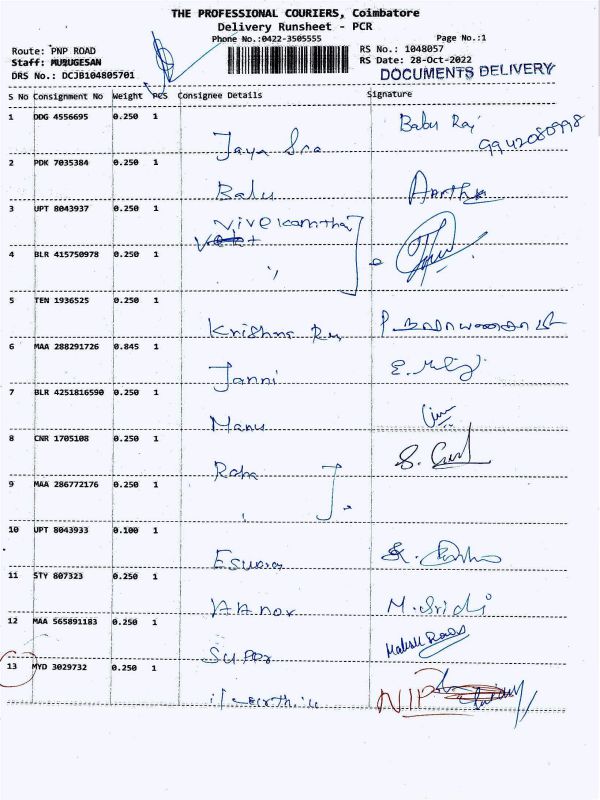 THE PROFESSIONAL COURIERS, Coimbatore
Delivery Runsheet - PCR
Phone No.:0422-3505555
Page No.:1
Route: PNP ROAD
RS No.: 1048057
Staff: MURUGESAN
RS Date: 28-Oct-2022
DRS No.: DCJB104805701
DOCUMENTS DELIVERY
S No Consignment No Weight PCS Consignee Details Signature
1 DDG 4556695 0.250 1
Babu Raj
9942080998
Jaya Sra
2 PDK 7035384 0.250 1
Balu
3 UPT 8043937 0.250 1
4 BLR 415750978 0.250 1
5 TEN 1936525 0.250 1
Krishna
6 MAA 288291726 0.845 1
Janni
7 BLR 4251816590 0.250 1
Manu
8 CNR 1705108 0.250 1
9 MAA 286772176 0.250 1
10 UPT 8043933 0.100 1
11 STY 807323 0.250 1
M. Sridi
12 MAA 565891183 0.250 1
Super
13 MYD 3029732 0.250 1